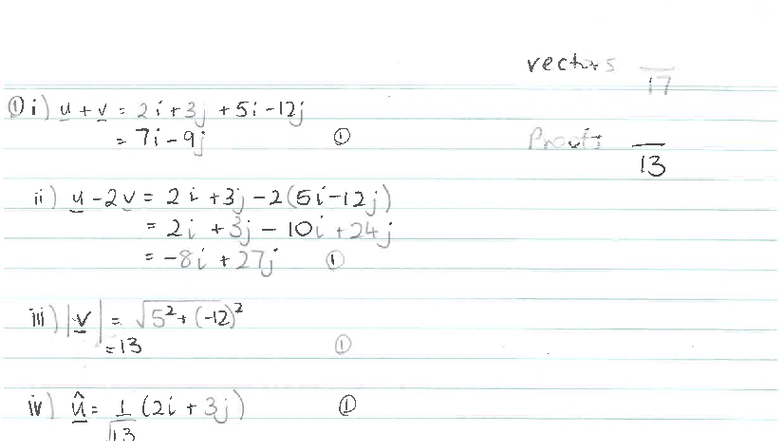 vectors /17
① i) u + v = 2i + 3j + 5i - 12j
= 7i - 9j ①
Proofs /13
ii) u - 2v = 2i + 3j - 2(5i - 12j)
= 2i + 3j - 10i + 24j
= -8i + 27j ①
iii) |v| = √5² + (-12)²
= 13 ①
iv) û = 1/√13 (2i + 3j) ①